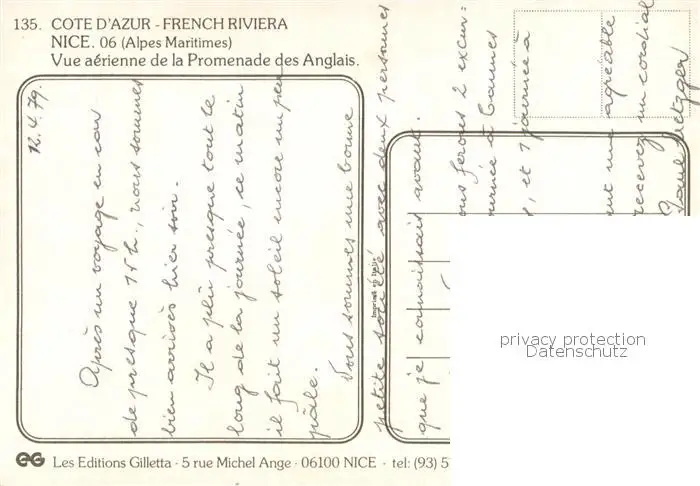 135. COTE D'AZUR - FRENCH RIVIERA
NICE. 06 (Alpes Maritimes)
Vue aérienne de la Promenade des Anglais.
12.4.79.
Après un voyage en car
de presque 15 h., nous sommes
bien arrivés hier soir.
Il a plu presque tout le
long de la journée, ce matin
il fait un soleil encore un peu
pâle.
Nous sommes une bonne
petite avec deux personnes
que je connaissais avant.
ferons 2 excur=
à Cannes
, et 1 journée à
une agréable
recevez un cordial
Metzger
Imprimé en Italie
privacy protection
Datenschutz
Les Editions Gilletta - 5 rue Michel Ange - 06100 NICE - tel: (93) 5